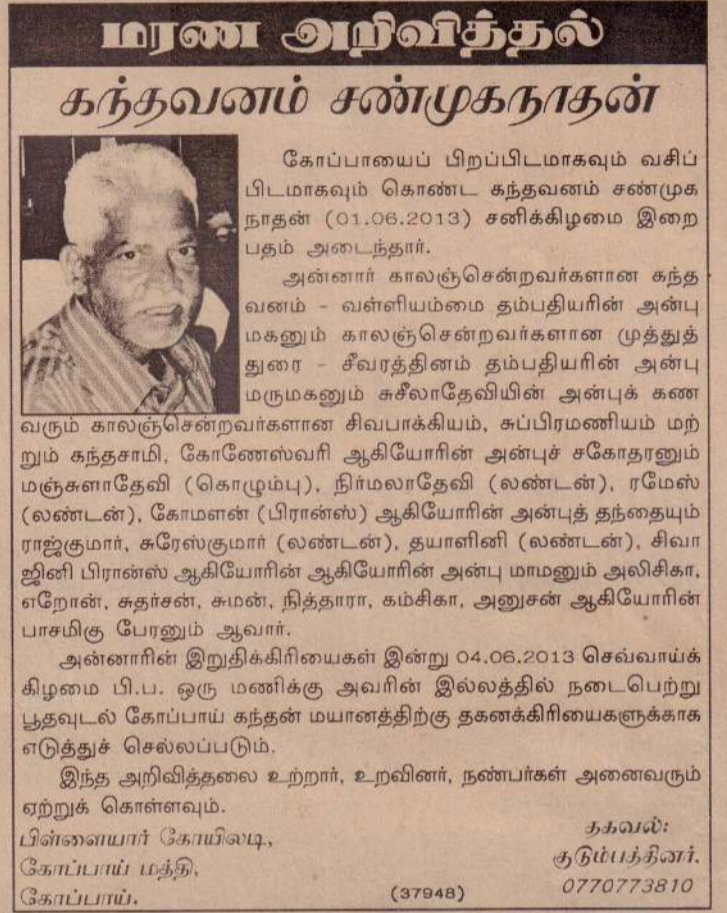 மரண அறிவித்தல்
கந்தவனம் சண்முகநாதன்
கோப்பாயைப் பிறப்பிடமாகவும் வசிப்
பிடமாகவும் கொண்ட கந்தவனம் சண்முக
நாதன் (01.06.2013) சனிக்கிழமை இறை
பதம் அடைந்தார்.
அன்னார் காலஞ்சென்றவர்களான கந்த
வனம் - வள்ளியம்மை தம்பதியரின் அன்பு
மகனும் காலஞ்சென்றவர்களான முத்துத்
துரை - சீவரத்தினம் தம்பதியரின் அன்பு
மருமகனும் சுசீலாதேவியின் அன்புக் கண
வரும் காலஞ்சென்றவர்களான சிவபாக்கியம், சுப்பிரமணியம் மற்
றும் கந்தசாமி, கோணேஸ்வரி ஆகியோரின் அன்புச் சகோதரனும்
மஞ்சுளாதேவி (கொழும்பு), நிர்மலாதேவி (லண்டன்), ரமேஸ்
(லண்டன்), கோமளன் (பிரான்ஸ்) ஆகியோரின் அன்புத் தந்தையும்
ராஜ்குமார், சுரேஸ்குமார் (லண்டன்), தயாளினி (லண்டன்), சிவா
ஜினி பிரான்ஸ் ஆகியோரின் ஆகியோரின் அன்பு மாமனும் அலிசிகா,
எறோன், சுதர்சன், சுமன், நித்தாரா, கம்சிகா, அனுசன் ஆகியோரின்
பாசமிகு பேரனும் ஆவார்.
அன்னாரின் இறுதிக்கிரியைகள் இன்று 04.06.2013 செவ்வாய்க்
கிழமை பி.ப. ஒரு மணிக்கு அவரின் இல்லத்தில் நடைபெற்று
பூதவுடல் கோப்பாய் கந்தன் மயானத்திற்கு தகனக்கிரியைகளுக்காக
எடுத்துச் செல்லப்படும்.
இந்த அறிவித்தலை உற்றார், உறவினர், நண்பர்கள் அனைவரும்
ஏற்றுக் கொள்ளவும்.
பிள்ளையார் கோயிலடி,
கோப்பாய் மத்தி,
கோப்பாய்.
(37948)
தகவல்:
குடும்பத்தினர்.
0770773810